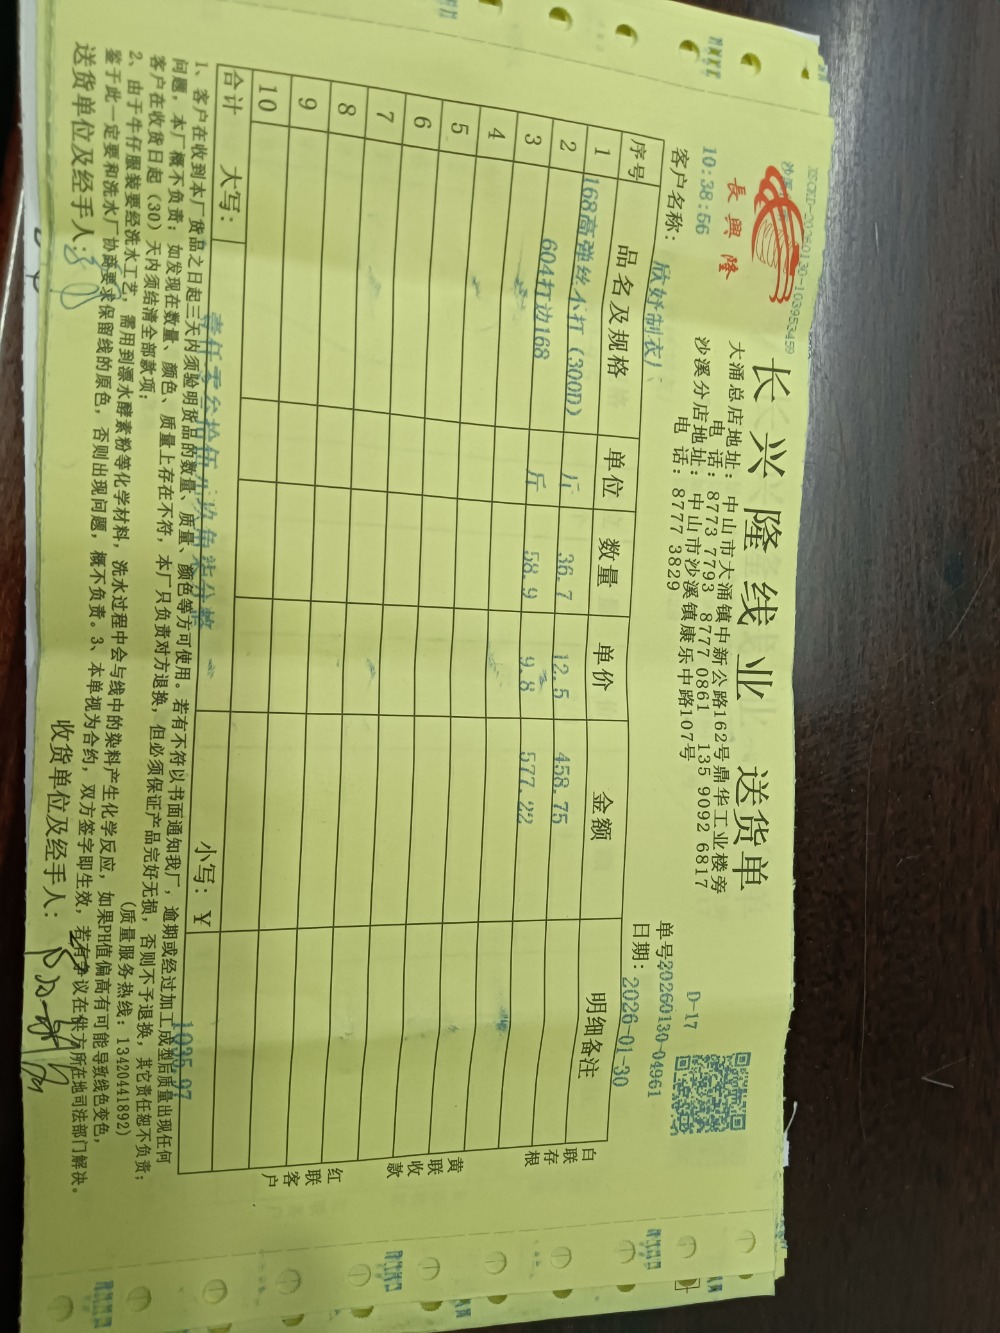 長興隆
长兴隆线业 送货单
大涌总店地址：中山市大涌镇中新公路162号鼎华工业楼旁
电 话：8773 7793 8777 0861 135 9092 6817
沙溪分店地址：中山市沙溪镇康乐中路107号
电 话：8777 3829
D-17
10:38:56
单号:20260130-04961
客户名称：欣妤制衣厂
日期：2026-01-30
序号 品名及规格 单位 数量 单价 金额 明细备注
1 168高弹丝不打（300D） 斤 36.7 12.5 458.75
2 604打边168 斤 58.9 9.8 577.22
3
4
5
6
7
8
9
10
合计 大写：壹仟零叁拾伍元玖角柒分整 小写：￥ 1035.97
白联存根
黄联收款
红联客户
1、客户在收到本厂货品之日起三天内须验明货品的数量、质量、颜色等方可使用。若有不符以书面通知我厂，逾期或经过加工成型后质量出现任何
问题，本厂概不负责；如发现在数量、颜色、质量上存在不符，本厂只负责对方退换，但必须保证产品完好无损，否则不予退换，其它责任恕不负责；
客户在收货日起（30）天内须结清全部款项；
（质量服务热线：13420441892）
2、由于牛仔服装要经洗水工艺，需用到漂水酵素粉等化学材料，洗水过程中会与线中的染料产生化学反应，如果PH值偏高有可能导致线色变色，
鉴于此一定要和洗水厂协商要求保留线的原色，否则出现问题，概不负责。3、本单视为合约，双方签字即生效，若有争议在供方所在地司法部门解决。
送货单位及经手人：
收货单位及经手人：